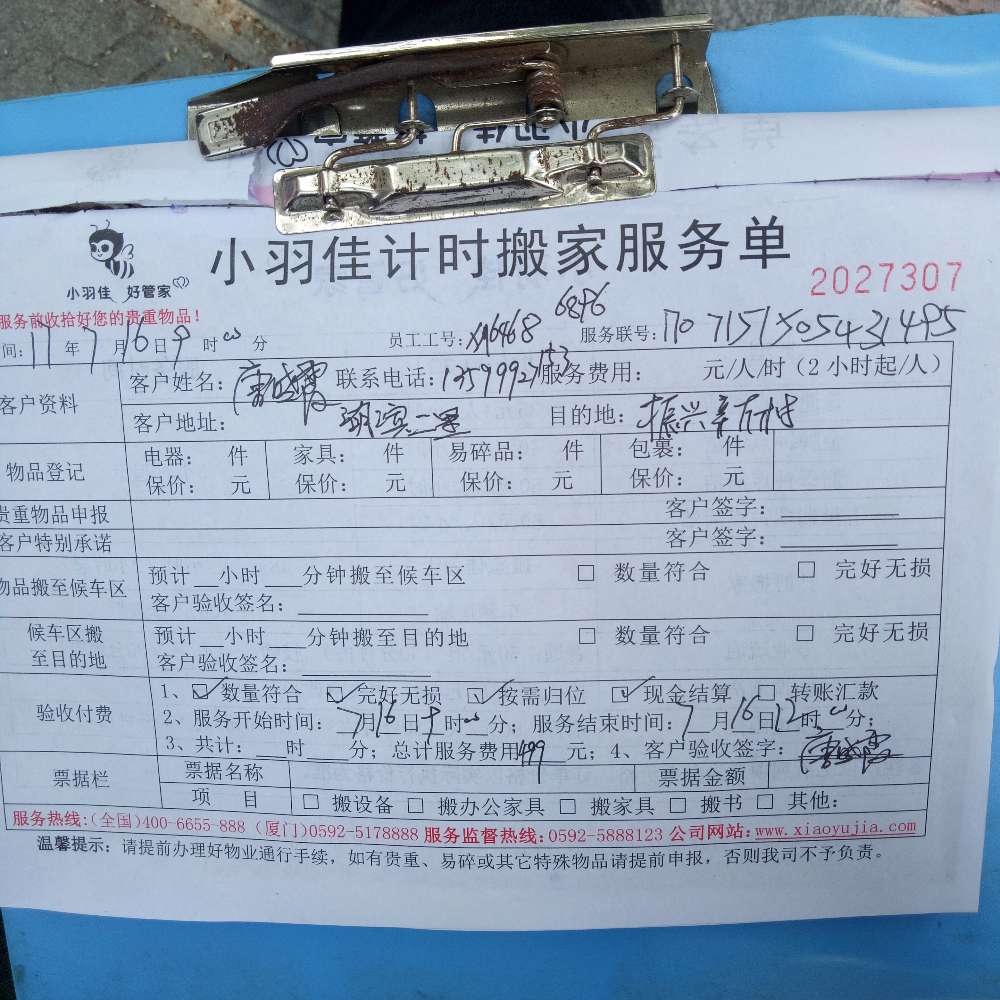 小羽佳计时搬家服务单
小羽佳 好管家
2027307
服务前收拾好您的贵重物品！
间：17年7月16日9时00分 员工工号：XM6468 6896 服务联号：1707151505431495
客户资料 客户姓名： 联系电话： 服务费用： 元/人/时（2小时起/人）
客户地址：湖滨二里 目的地：振兴新村
物品登记 电器： 件 家具： 件 易碎品： 件 包裹： 件
保价： 元 保价： 元 保价： 元 保价： 元
贵重物品申报 客户签字：
客户特别承诺 客户签字：
物品搬至候车区 预计__小时___分钟搬至候车区 □ 数量符合 □ 完好无损
客户验收签名：
候车区搬至目的地 预计__小时___分钟搬至目的地 □ 数量符合 □ 完好无损
客户验收签名：
验收付费 1、☑数量符合 ☑完好无损 ☑按需归位 ☑现金结算 □ 转账汇款
2、服务开始时间：7月16日9时00分；服务结束时间：7月16日12时00分；
3、共计：__时 分；总计服务费用499元；4、客户验收签字：
票据栏 票据名称 票据金额
项 目 □ 搬设备 □ 搬办公家具 □ 搬家具 □ 搬书 □ 其他：
服务热线：(全国)400-6655-888 (厦门)0592-5178888 服务监督热线：0592-5888123 公司网站：www.xiaoyujia.com
温馨提示：请提前办理好物业通行手续，如有贵重、易碎或其它特殊物品请提前申报，否则我司不予负责。